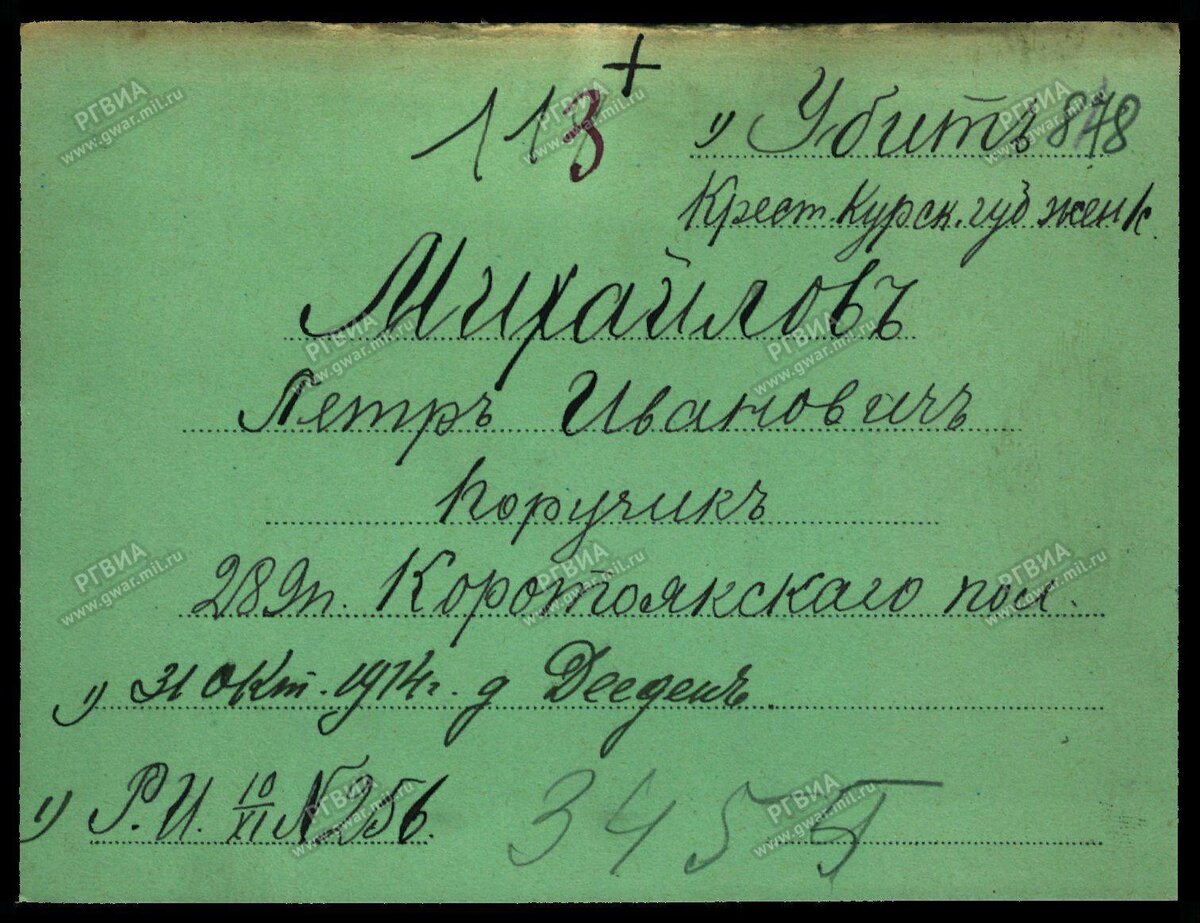 +
113
1) Убитъ 878
Крест. Курск. губ жен
Михайловъ
Петръ Ивановичъ
Поручикъ
289 п. Коротоякскаго пол.
1) 31 окт. 1914 г. д Дееденъ
1) Р.И. 10/XI № 256.
345
РГВИА
www.gwar.mil.ru